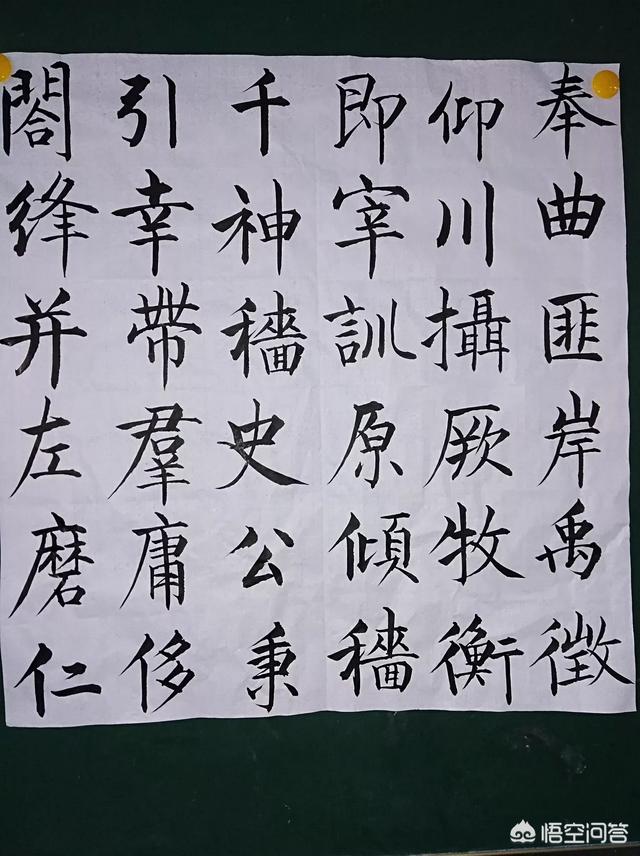 奉曲匪岸禹微
仰川攝厥牧衡
即宰訓原傾穡
千神穡史公秉
引幸帶羣庸侈
閤絳并左磨仁
悟空问答